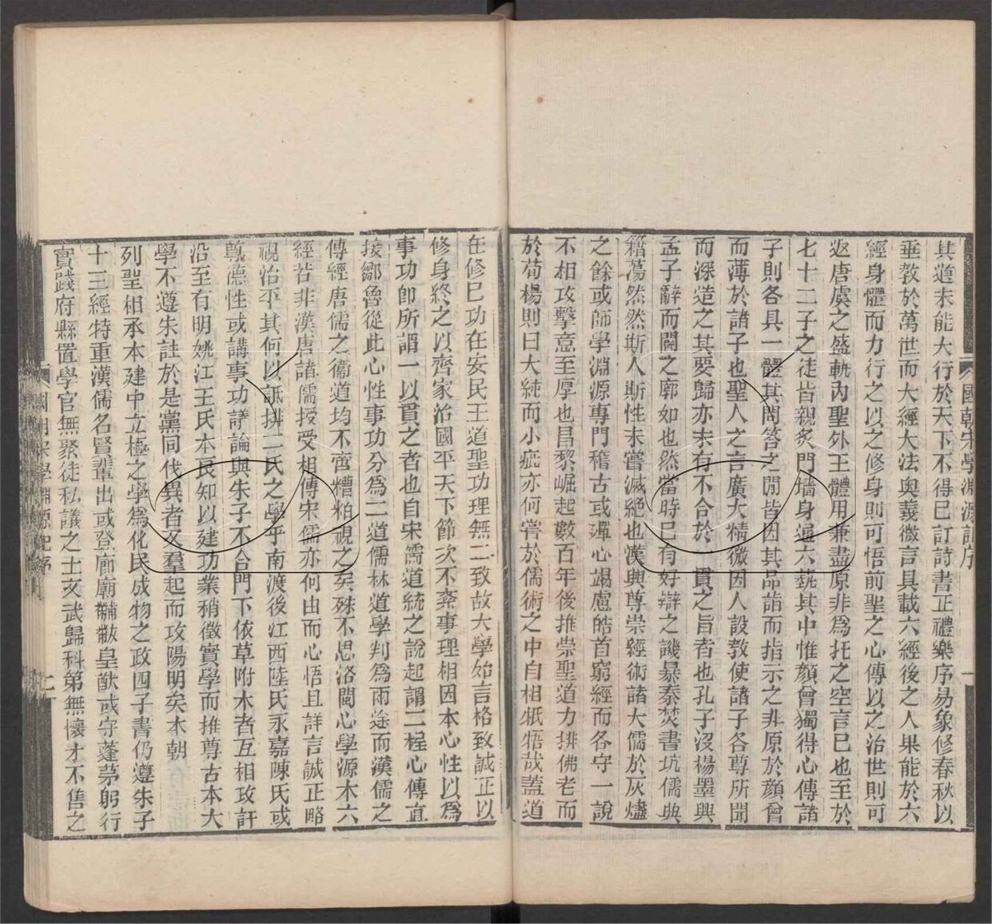 其道未能大行於天下不得已訂詩書正禮樂序易象修春秋以
垂敎於萬世而大經大法與義微言具載六經後之人果能於六
經身體而力行之以之修身則可悟前聖之心傳以之治世則可
返唐虞之盛軌內聖外王體用兼盡原非爲托之空言已也至於
七十二子之徒皆親炙門墻身通六藝其中惟顏曾獨得心傳諸
子則各具一體其問答之閒皆因其品詣而指示之非原於顏曾
而薄於諸子也聖人之言廣大精微因人設敎使諸子各尊所聞
而深造之其要歸亦未有不合於一貫之旨者也孔子沒楊墨興
孟子辭而闢之廓如也然當時已有好辯之譏暴秦焚書坑儒典
籍蕩然然斯人斯性未嘗滅絕也漢興尊崇經術諸大儒於灰燼
之餘或師學淵源專門稽古或殫心竭慮皓首窮經而各守一說
不相攻擊意至厚也昌黎崛起數百年後推崇聖道力排佛老而
於荀楊則曰大純而小疵亦何嘗於儒術之中自相牴牾哉蓋道
國朝宋學淵源記序
一
在修已功在安民王道聖功理無二致故大學始言格致誠正以
修身終之以齊家治國平天下節次不紊事理相因本心性以爲
事功卽所謂一以貫之者也自宋儒道統之說起謂二程心傳直
接鄒魯從此心性事功分爲二道儒林道學判爲兩途而漢儒之
傳經唐儒之衛道均不啻糟粕視之矣殊不思洛閩心學源本六
經若非漢唐諸儒授受相傳宋儒亦何由而心悟且詳言誠正略
視治平其何以詆排二氏之學乎南渡後江西陸氏永嘉陳氏或
尊德性或講事功議論與朱子不合門下依草附木者互相攻訐
沿至有明姚江王氏本良知以建功業稍徵實學而推尊古本大
學不遵朱註於是黨同伐異者又羣起而攻陽明矣本朝
列聖相承本建中立極之學爲化民成物之政四子書仍遵朱子
十三經特重漢儒名賢輩出或登廊廟黼黻皇猷或守蓬茅躬行
實踐府縣置學官無聚徒私議之士文武歸科第無懷才不售之